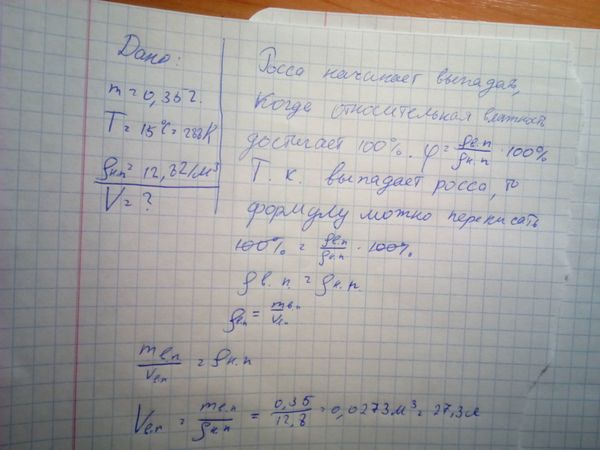 Дано:
m = 0,35г.
T = 15°C = 288K
ρн.п = 12,8г/м³
V = ?
Росса начинает выпадать,
Когда относительная влажность
достигает 100%. φ = ρв.п/ρн.п · 100%
Т. к. выпадает росса, то
формулу можно переписать
100% = ρв.п/ρн.п · 100%
ρв.п. = ρн.п.
ρвп = mв.п/Vв.п
mв.п/Vв.п = ρн.п
Vв.п = mв.п/ρн.п = 0,35/12,8 = 0,0273м³ = 27,3л